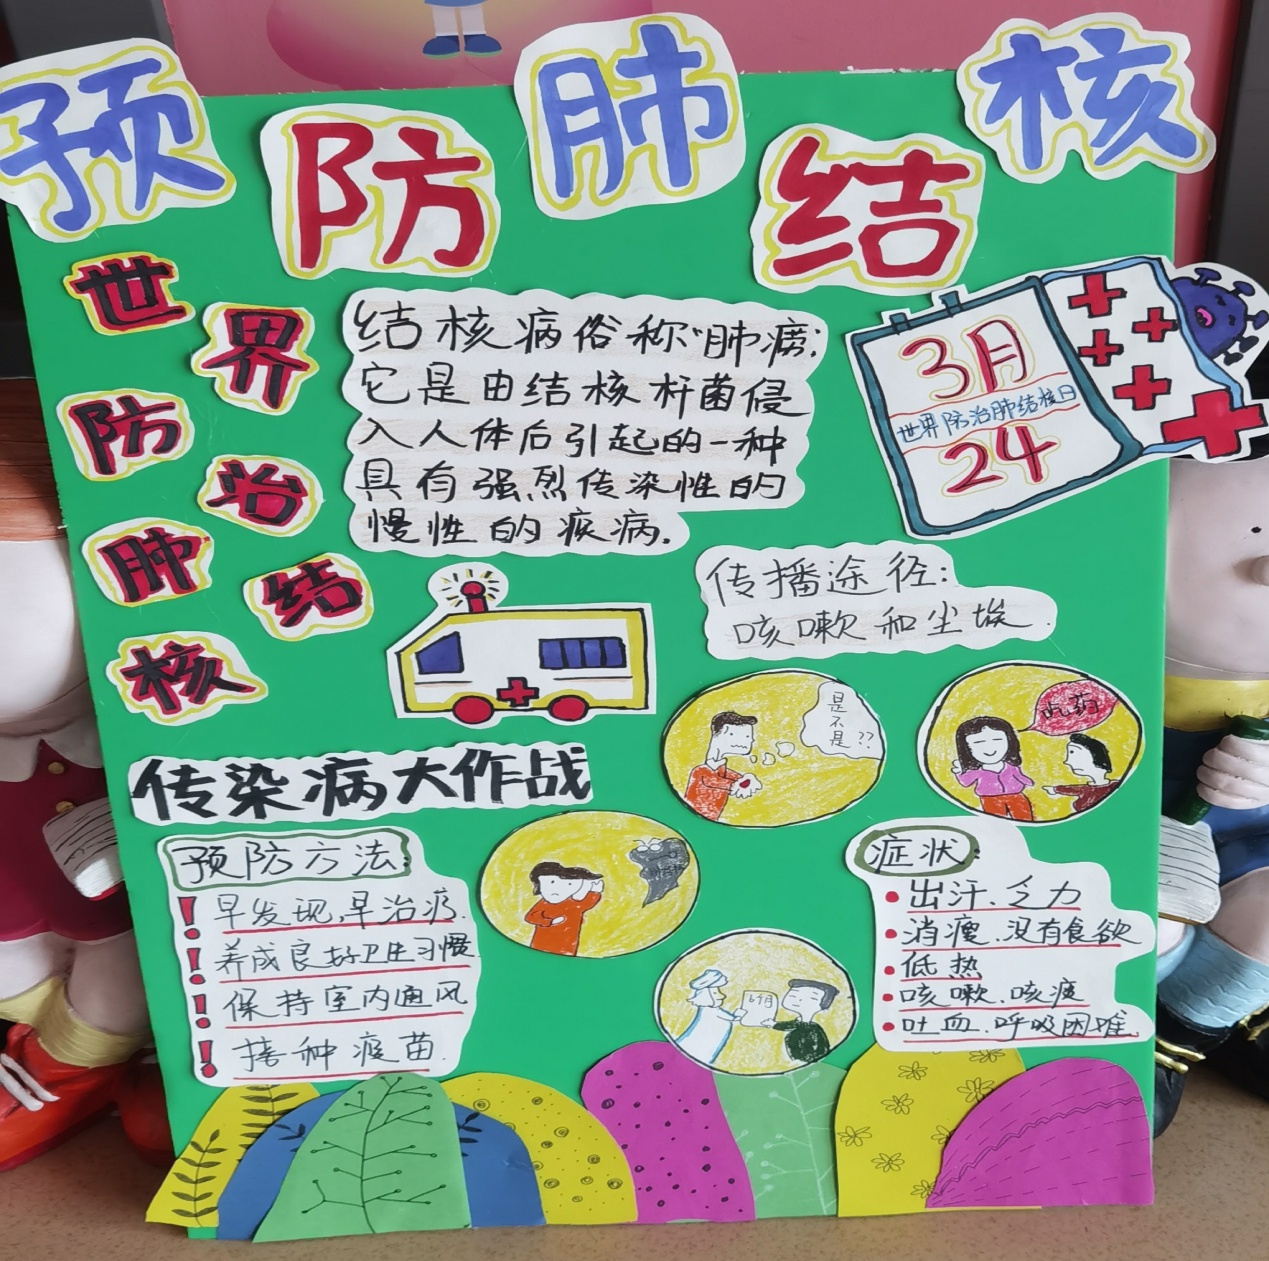 预防肺结核
世界防治肺结核
结核病俗称"肺痨",
它是由结核杆菌侵
入人体后引起的一种
具有强烈传染性的
慢性的疾病.
3月
世界防治肺结核日
24
传播途径:
咳嗽和尘埃.
是
不
是??
吃药
传染病大作战
预防方法:
早发现,早治疗.
养成良好卫生习惯
保持室内通风
接种疫苗.
6个月
症状:
出汗、乏力
消瘦、没有食欲
低热
咳嗽、咳痰
吐血、呼吸困难.